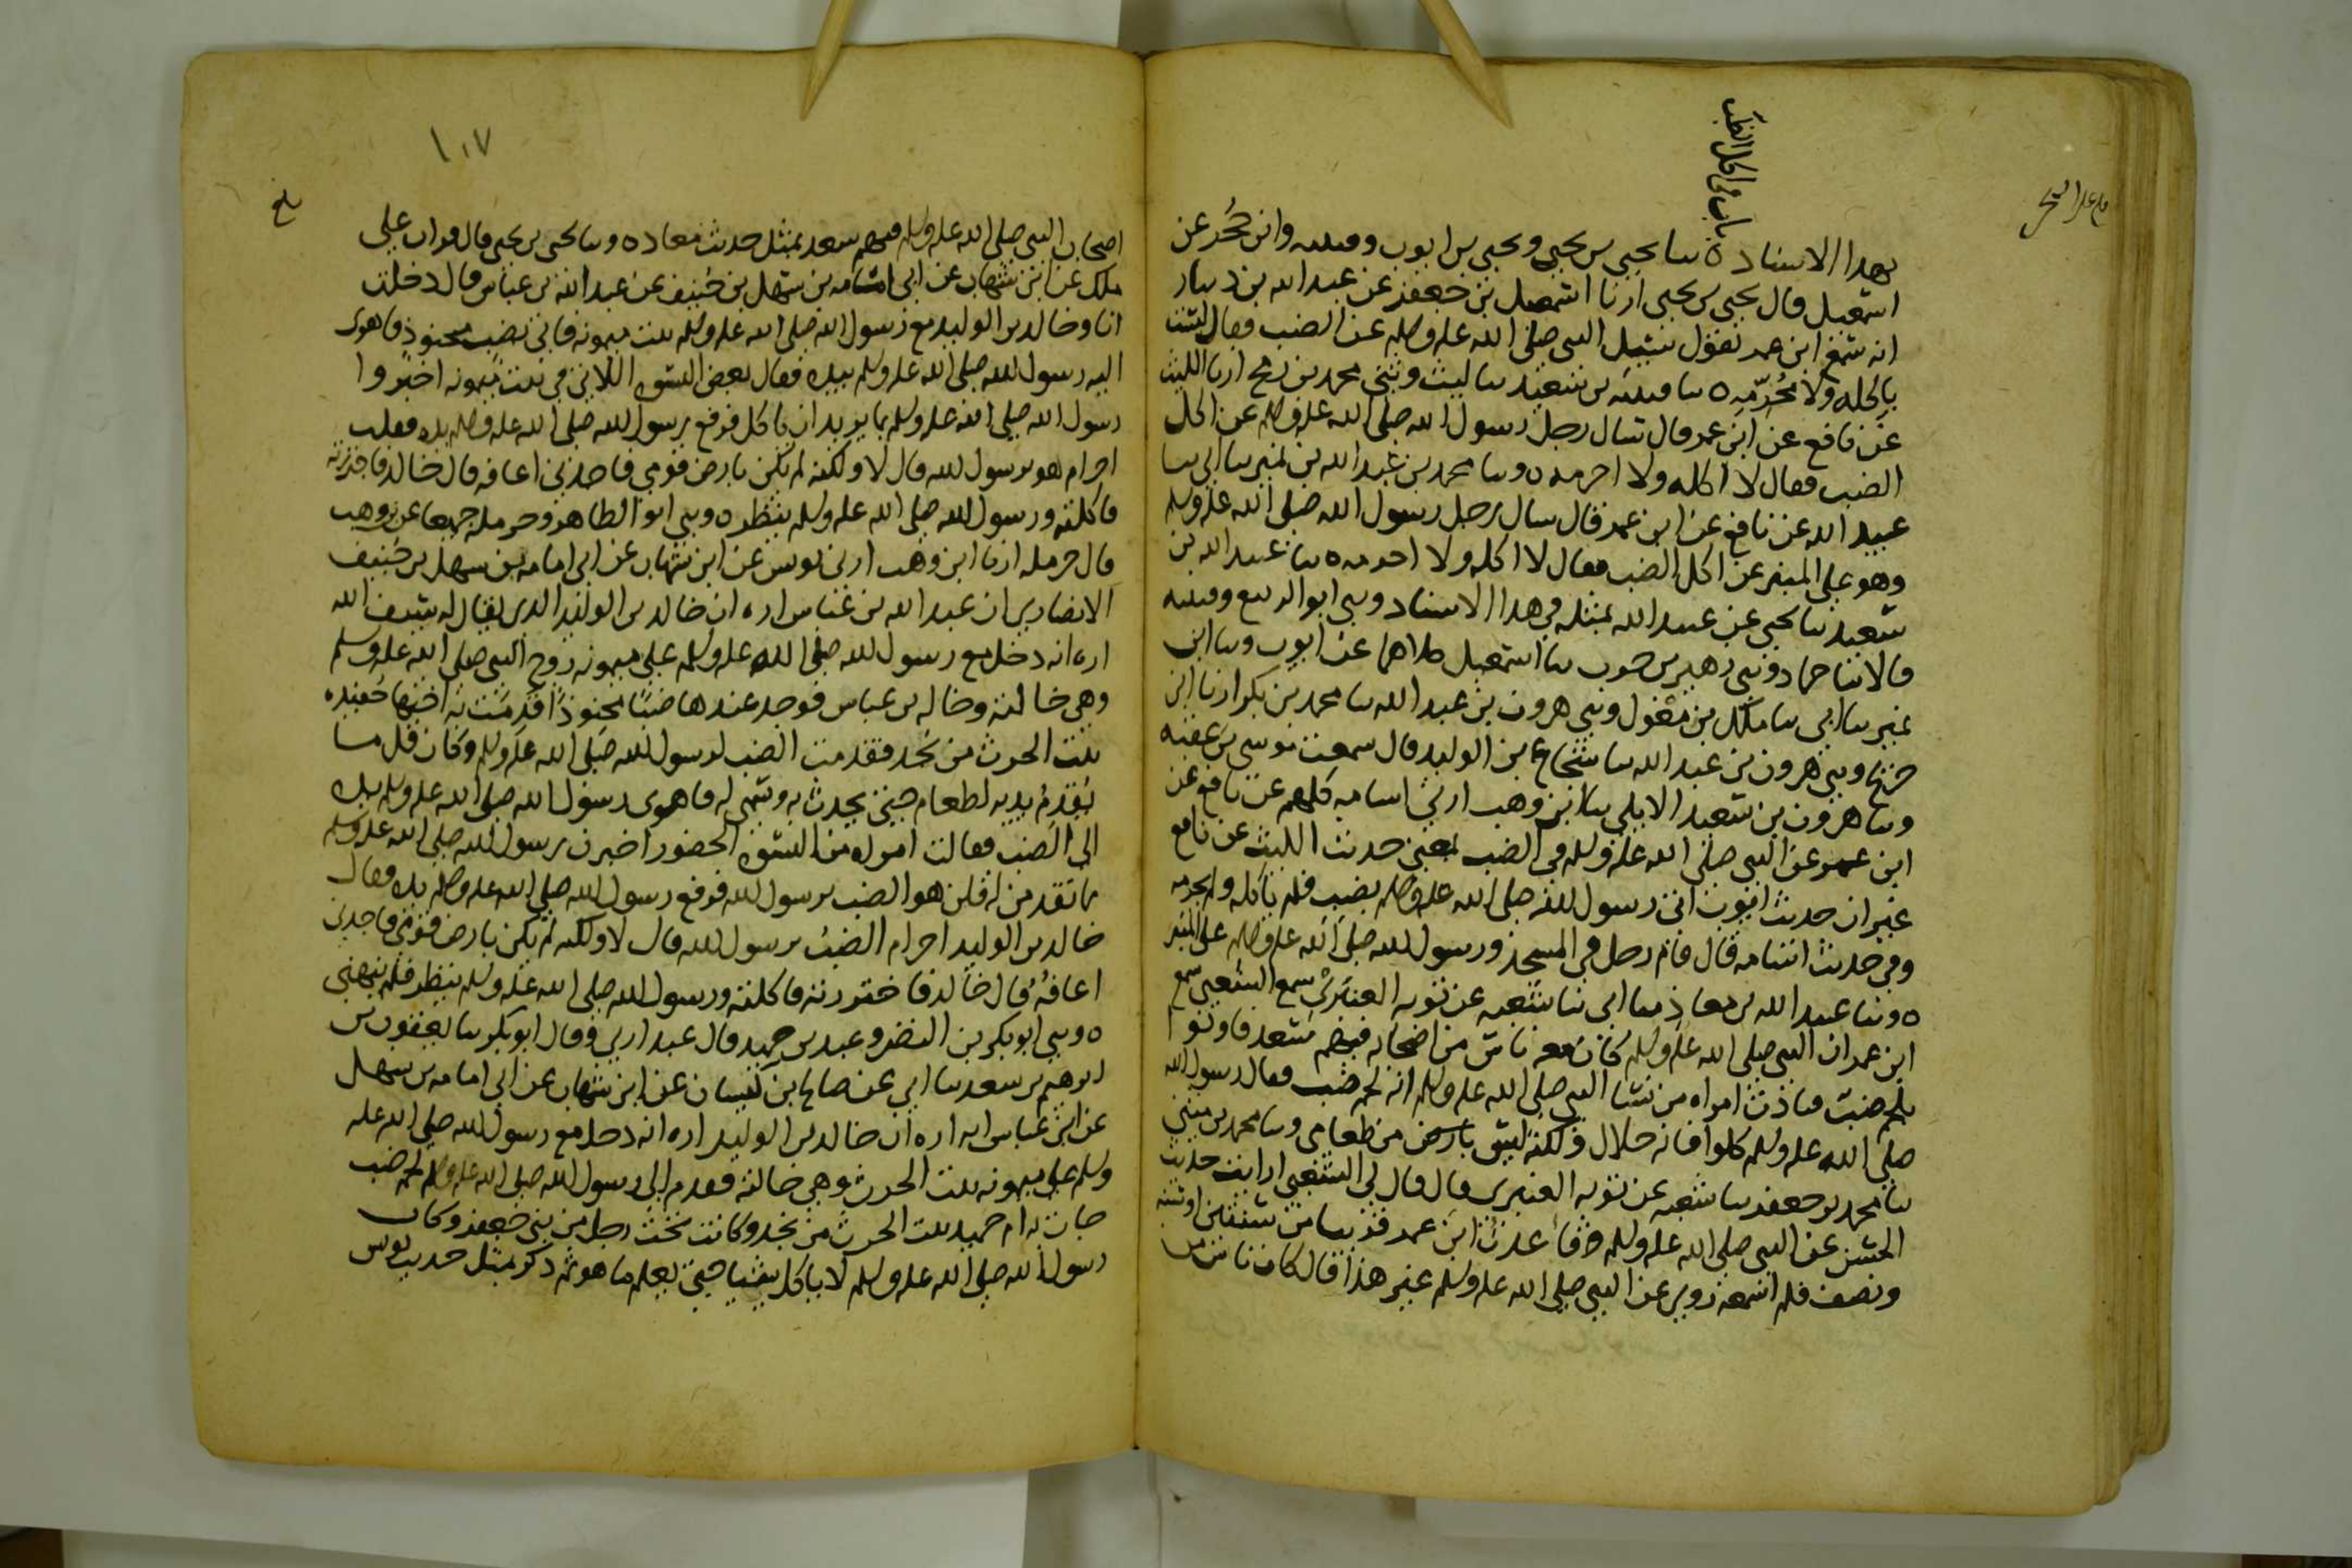 باب في اكل الضب
بهدا الاسناد ه ىنا يحيى بن يحيى ويحيى بن ايوب وقتيبه وابن حُجر عن
اسمعيل قال يحيى بن يحيى ارنا اسمعيل بن جعفر عن عبد الله بن دينار
انه سمع ابن عمر يقول سئل النبي صلى الله عليه وسلم عن الضب فقال لست
باكله ولا محُرّمِه ه ىنا قتيبه بن سعيد ىنا ليث وثنى محمد بن رمح ارنا الليث
عن نافع عن ابن عمر قال سال رجل رسول الله صلى الله عليه وسلم عن اكل
الضب فقال لا اكله ولا احرمه ه وىنا محمد بن عبد الله بن نمير ىنا ابي ىنا
عبيد الله عن نافع عن ابن عمر قال سال رجل رسول الله صلى الله عليه وسلم
وهو على المنبر عن اكل الضب فقال لا اكله ولا احرمه ه ىنا عبيد الله بن
سعيد ىنا يحيى عن عبيد الله بمثله في هدا الاسناد وثنى ابو الربيع وقتيبه
قالا ثنا حماد وثنى زهير بن حرب ىنا اسمعيل كلاهما عن ايوب وىنا ابن
نمير ىنا ابي ىنا ملك بن مغول وثنى هرون بن عبد الله ىنا محمد بن بكر ارنا ابن
جريج وثنى هرون بن عبد الله ىنا شجاع بن الوليد قال سمعت موسى بن عقبه
وىنا هرون بن سعيد الايلي ىنا ابن وهب ارني اسامه كلهم عن نافع عن
ابن عمر عن النبي صلى الله عليه وسلم في الضب بمعنى حديث الليث عن نافع
غير ان حديث ايوب اتى رسول الله صلى الله عليه وسلم بضب فلم ياكله ولم يحرمه
وفي حديث اسامه قال قام رجل في المسجد ورسول الله صلى الله عليه وسلم على المنبر
ه وىنا عبيد الله بن معاذ ىنا ابي ىنا شعبه عن توبه العنبري سمع الشعبي سمع
ابن عمر ان النبي صلى الله عليه وسلم كان معه ناس من اصحابه فيهم سعد فاوتوا
بلحم ضب فنادت امراه من نسا النبي صلى الله عليه وسلم انه لحم ضب فقال رسول الله
صلى الله عليه وسلم كلوا فانه حلال ولكنه ليس بارض من طعامي وىنا محمد بن مثنى
ىنا محمد بن جعفر ىنا شعبه عن توبه العنبري قال قال لي الشعبي ارايت حديث
الحسن عن النبي صلى الله عليه وسلم وقاعدت ابن عمر قريبا من سنتين او سنه
ونصف فلم اسمعه روى عن النبي صلى الله عليه وسلم غير هذا قال كان ناس من
١٠٧
بلغ
اصحاب النبي صلى الله عليه وسلم فيهم سعد بمثل حديث معاد ه وىنا يحيى بن يحيى قال قرات على
ملك عن ابن شهاب عن ابي امامه بن سهل بن حنيف عن عبد الله بن عباس قال دخلت
انا وخالد بن الوليد مع رسول الله صلى الله عليه وسلم بيت ميمونه فاتى بضب محنوذ فاهوى
اليه رسول الله صلى الله عليه وسلم بيده فقال بعض النسوه اللاتي في بيت ميمونه اخبروا
رسول الله صلى الله عليه وسلم بما يريد ان ياكل فرفع رسول الله صلى الله عليه وسلم يده فقلت
احرام هو يرسول الله قال لا ولكنه لم يكن بارض قومي فاجدني اعافه قال خالد فاجتررته
فاكلته ورسول الله صلى الله عليه وسلم ينظر ه وثنى ابو الطاهر وحرمله جميعا عن بن وهب
قال حرمله ارنا ابن وهب ارني يونس عن ابن شهاب عن ابي امامه بن سهل بن حنيف
الانصاري ان عبد الله بن عباس اره ان خالد بن الوليد الدى يقال له سيف الله
اره انه دخل مع رسول الله صلى الله عليه وسلم على ميمونه زوج النبي صلى الله عليه وسلم
وهي خالته وخاله بن عباس فوجد عندها ضبًا محنوذًا قدمت به اختها حُفيده
بنت الحرث من نجد فقدمت الضب لرسول الله صلى الله عليه وسلم وكان قل ما
يُقدم يديه لطعام حتى يحدث به وتسمى له فاهوى رسول الله صلى الله عليه وسلم يده
الى الضب فقالت امراه من النسوه الحضور اخبرن رسول الله صلى الله عليه وسلم
بما تقدمن له قلن هو الضب يرسول الله فرفع رسول الله صلى الله عليه وسلم يده فقال
خالد بن الوليد احرام الضب يرسول الله قال لا ولكنه لم يكن بارض قومي فاجدني
اعافُه قال خالد فاجتررته فاكلته ورسول الله صلى الله عليه وسلم ينظر فلم ينهني
ه وثنى ابو بكر بن النضر وعبد بن حميد قال عبد ارني وقال ابو بكر ىنا يعقوب بن
ابرهيم بن سعد ىنا ابي عن صالح بن كيسان عن ابن شهاب عن ابي امامه بن سهل
عن ابن عباس انه اره ان خالد بن الوليد اره انه دخل مع رسول الله صلى الله عليه
وسلم على ميمونه بنت الحرث وهي خالته فقدم الى رسول الله صلى الله عليه وسلم لحم ضب
جات به ام حميد بنت الحرث من نجد وكانت تحت رجل من بني جعفر وكان
رسول الله صلى الله عليه وسلم لا ياكل شيئا حتى يعلم ما هو ثم ذكر بمثل حديث يونس